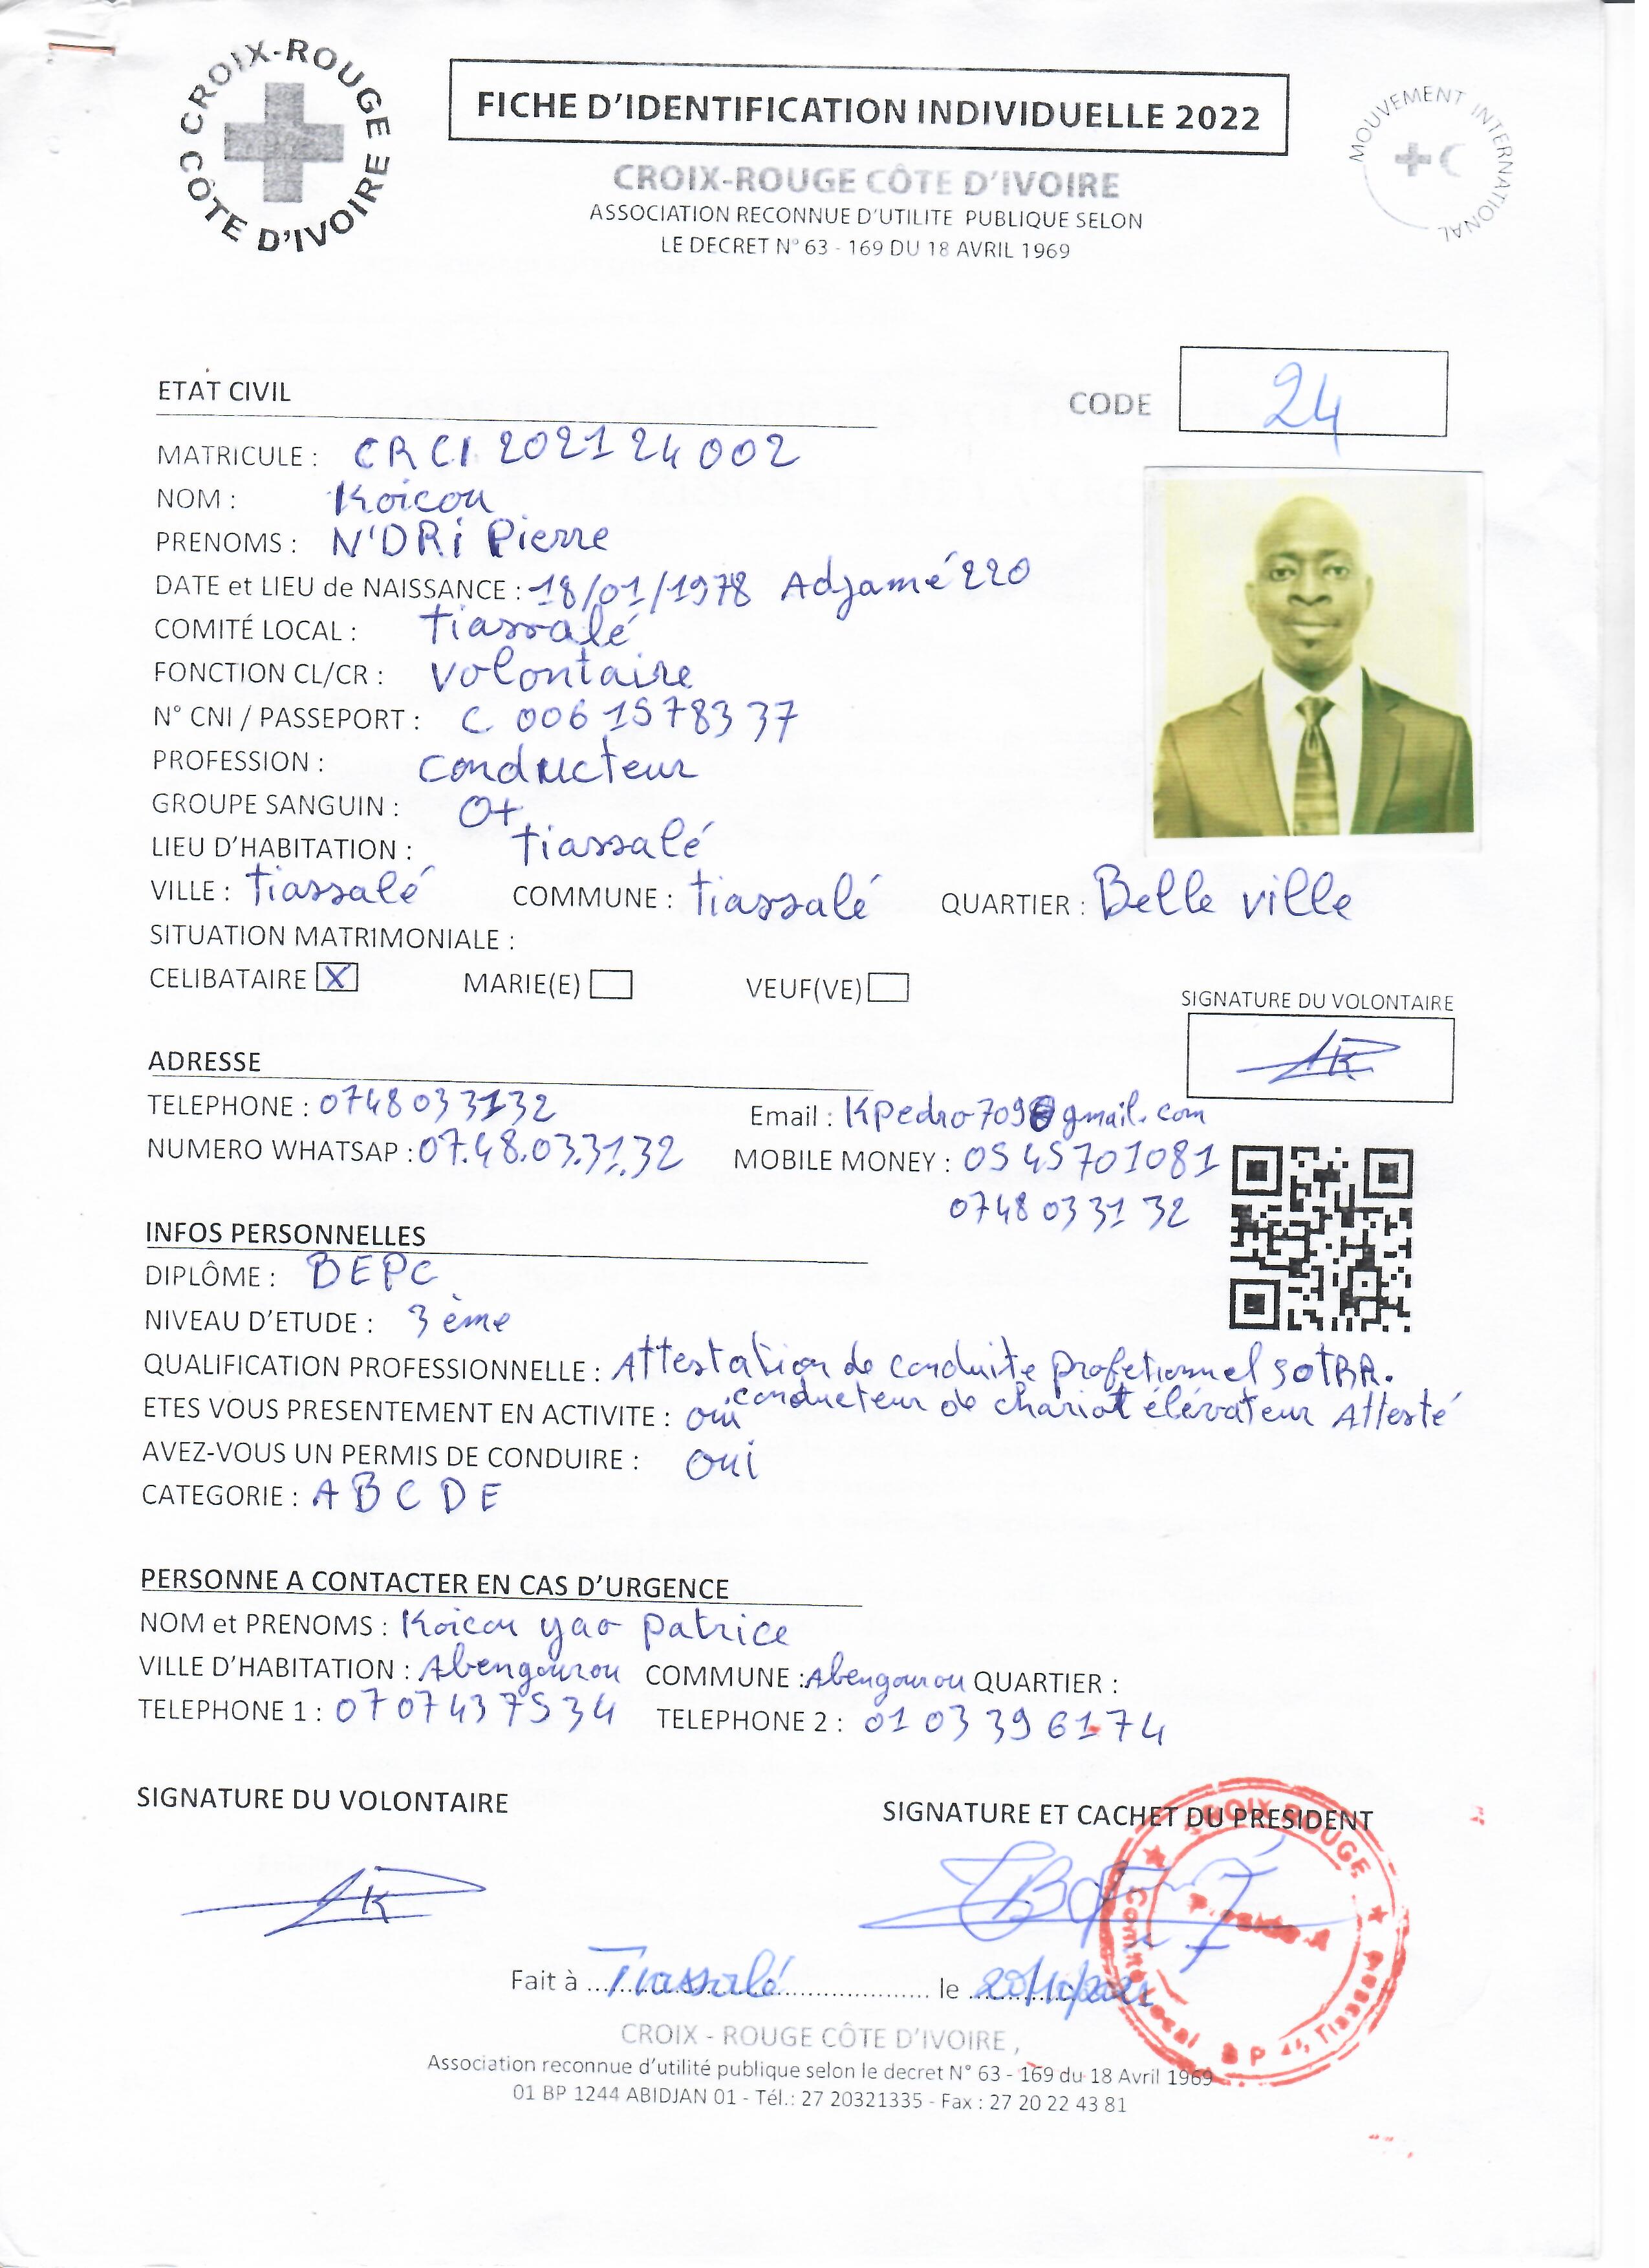 CROIX-ROUGE CÔTE D'IVOIRE
FICHE D'IDENTIFICATION INDIVIDUELLE 2022
MOUVEMENT INTERNATIONAL
CROIX-ROUGE CÔTE D'IVOIRE
ASSOCIATION RECONNUE D'UTILITE PUBLIQUE SELON
LE DECRET N° 63 - 169 DU 18 AVRIL 1969
ETAT CIVIL
CODE 24
MATRICULE : CRCI 2021 24 002
NOM : Koicou
PRENOMS : N'DRi Pierre
DATE et LIEU de NAISSANCE : 18/01/1978 Adjamé 220
COMITÉ LOCAL : tiassalé
FONCTION CL/CR : Volontaire
N° CNI / PASSEPORT : C 006 1578337
PROFESSION : conducteur
GROUPE SANGUIN : O+
LIEU D'HABITATION : tiassalé
VILLE : tiassalé COMMUNE : tiassalé QUARTIER : Belle ville
SITUATION MATRIMONIALE :
CELIBATAIRE X MARIE(E) VEUF(VE)
SIGNATURE DU VOLONTAIRE
ADRESSE
TELEPHONE : 0748033132 Email : Kpedro709@gmail.com
NUMERO WHATSAP : 07.48.03.31.32 MOBILE MONEY : 05 45 701081
0748 03 31 32
INFOS PERSONNELLES
DIPLÔME : BEPC
NIVEAU D'ETUDE : 3 ème
QUALIFICATION PROFESSIONNELLE : Attestation de conduite profetionnel SOTRA.
conducteur de chariot élévateur Attesté
ETES VOUS PRESENTEMENT EN ACTIVITE : oui
AVEZ-VOUS UN PERMIS DE CONDUIRE : oui
CATEGORIE : A B C D E
PERSONNE A CONTACTER EN CAS D'URGENCE
NOM et PRENOMS : Koicou yao patrice
VILLE D'HABITATION : Abengourou COMMUNE : Abengourou QUARTIER :
TELEPHONE 1 : 07 07 43 75 34 TELEPHONE 2 : 01 03 39 61 74
SIGNATURE DU VOLONTAIRE
SIGNATURE ET CACHET DU PRESIDENT
CROIX ROUGE
Comité Local B P
Fait à Tiassalé le
CROIX - ROUGE CÔTE D'IVOIRE ,
Association reconnue d'utilité publique selon le decret N° 63 - 169 du 18 Avril 1969
01 BP 1244 ABIDJAN 01 - Tél.: 27 20321335 - Fax : 27 20 22 43 81